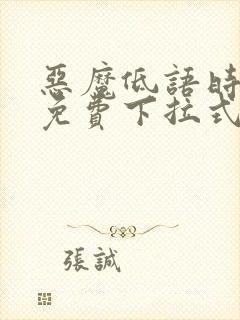 惡魔低語時
免費下拉式
張誠